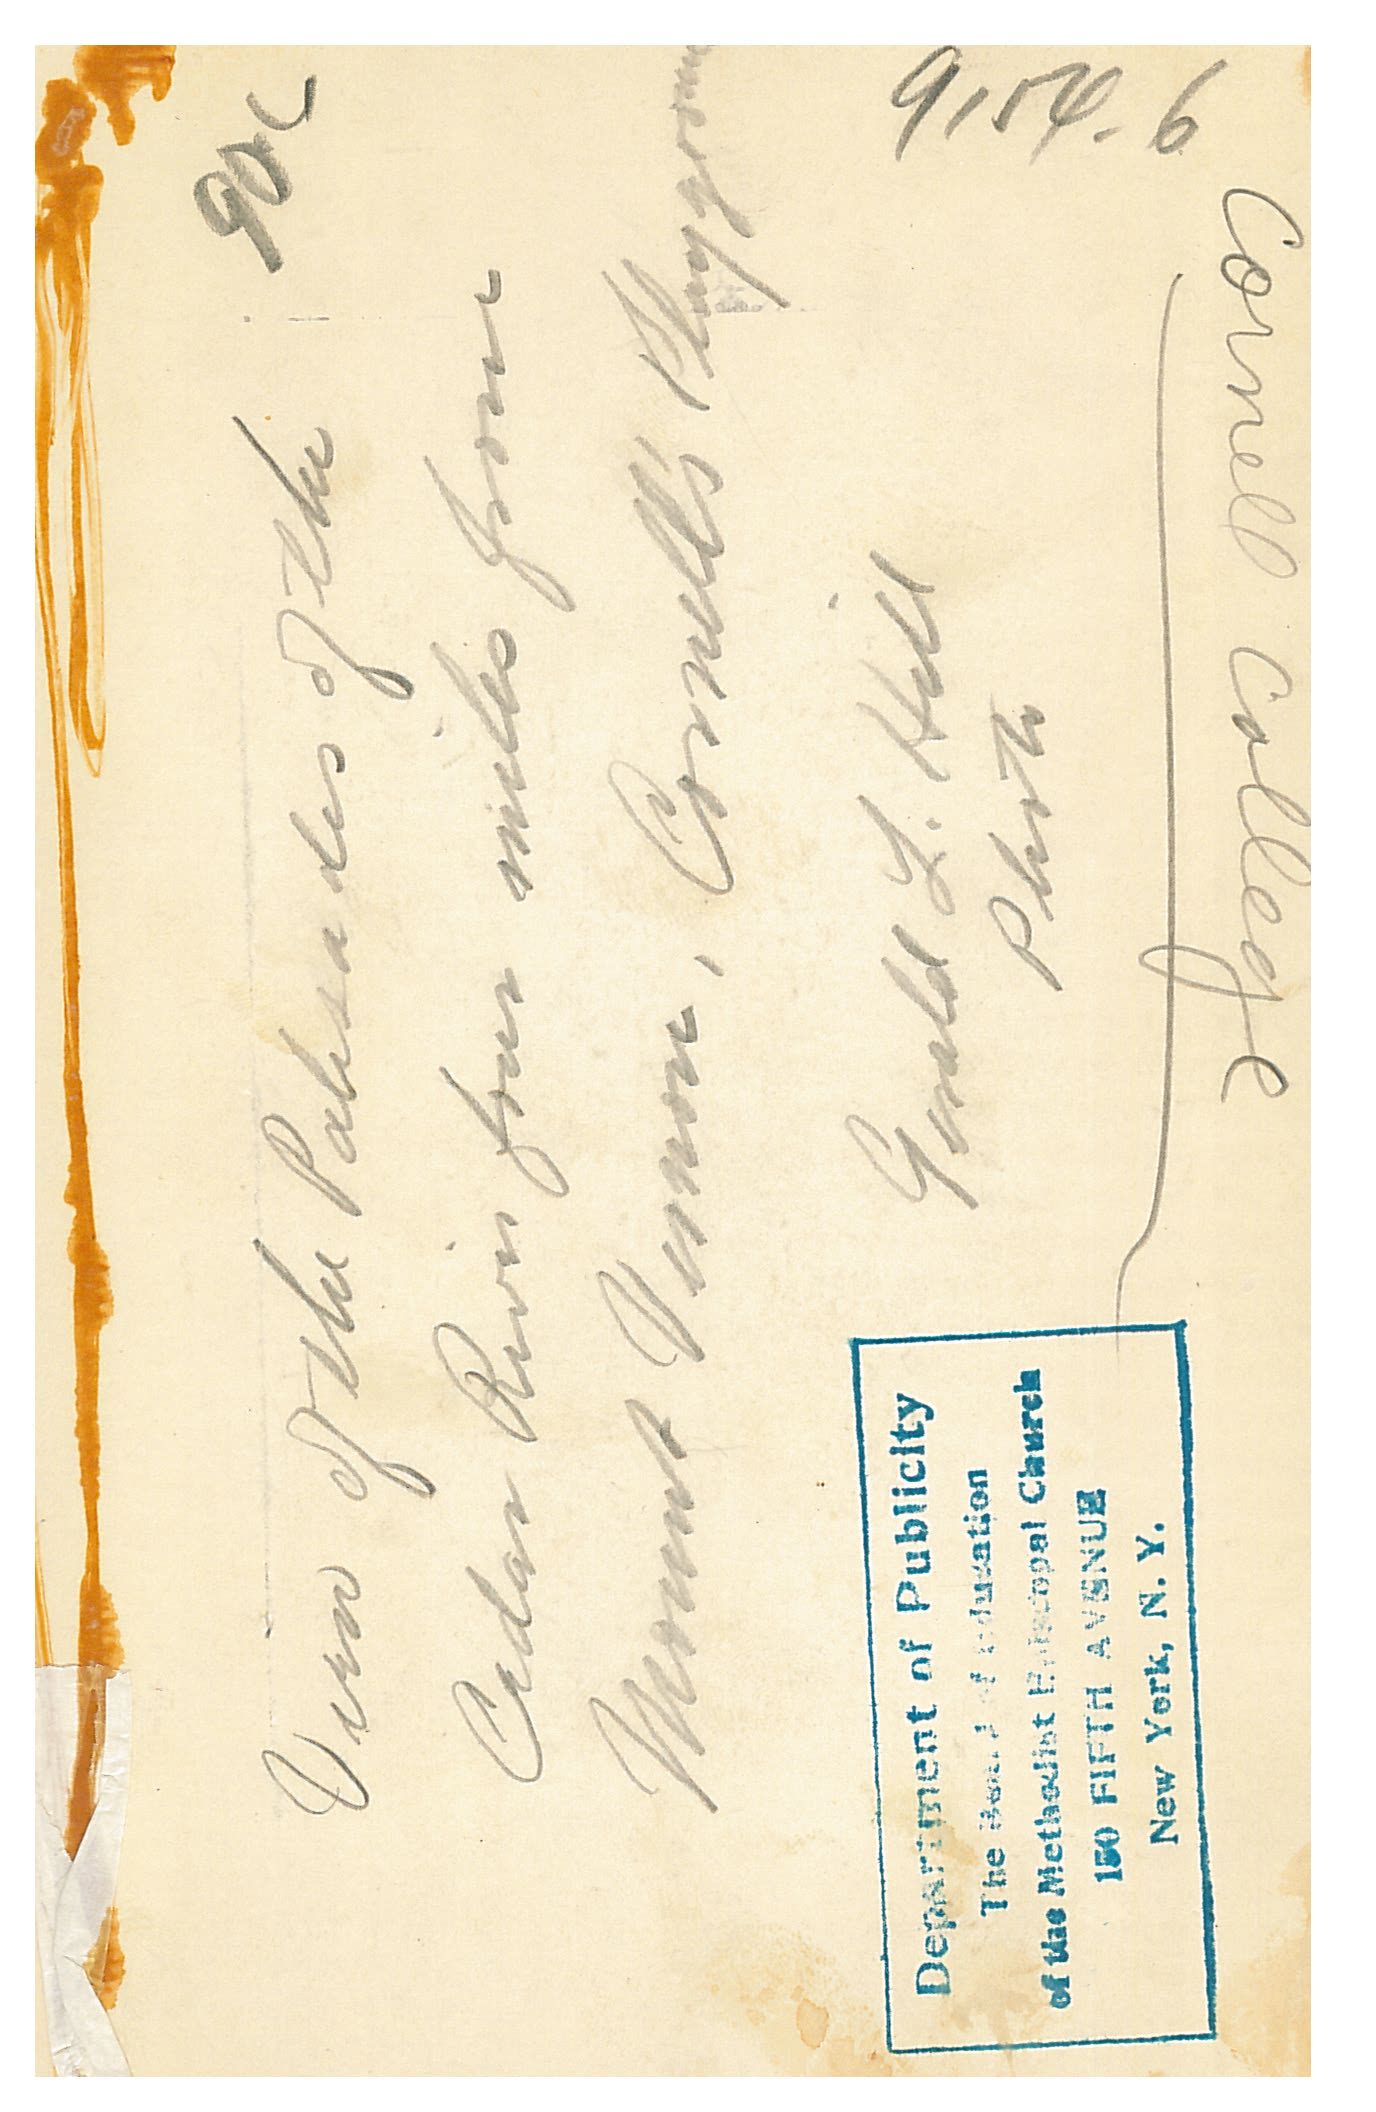 90c
View of the Palisades of the
Cedar River four miles from
Mount Vernon, Cornell's Playground
Gerald L. Hill
Photo
9,54.6
Cornell College
Department of Publicity
The Board of Education
of the Methodist Episcopal Church
150 FIFTH AVENUE
New York, N. Y.